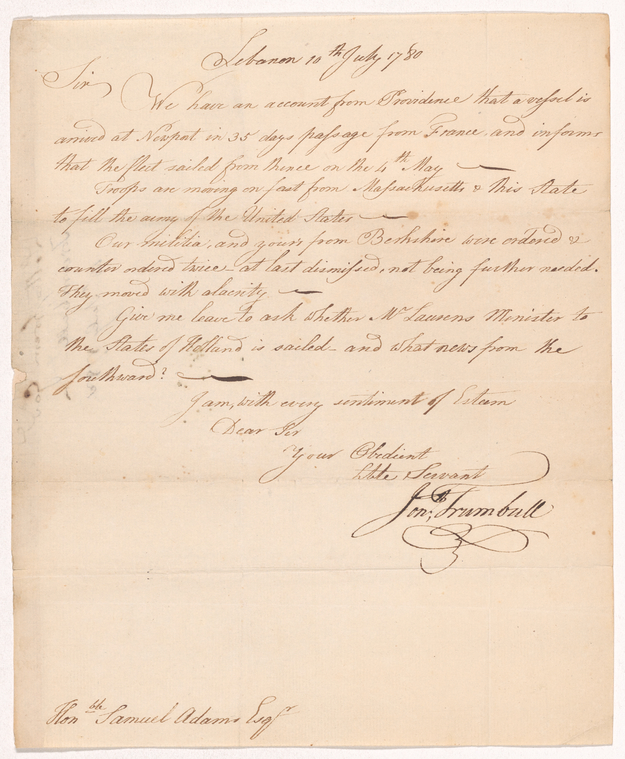 Lebanon 10th July 1780
Sir
We have an account from Providence that a vessel is
arrived at Newport in 35 days passage from France, and informs
that the fleet sailed from thence on the 4th May —
Troops are moving on fast from Massachusetts & this State
to fill the army of the United States —
Our militia, and yours from Berkshire were ordered &
counter ordered twice – at last dismissed, not being further needed.
They moved with alacrity —
Give me leave to ask whether Mr Laurens Minister to
the States of Holland is sailed – and what news from the
southward? —
I am, with every sentiment of Esteem
Dear Sir
Your Obedient
hble Servant
Jonth; Trumbull
Honble Samuel Adams Esqr